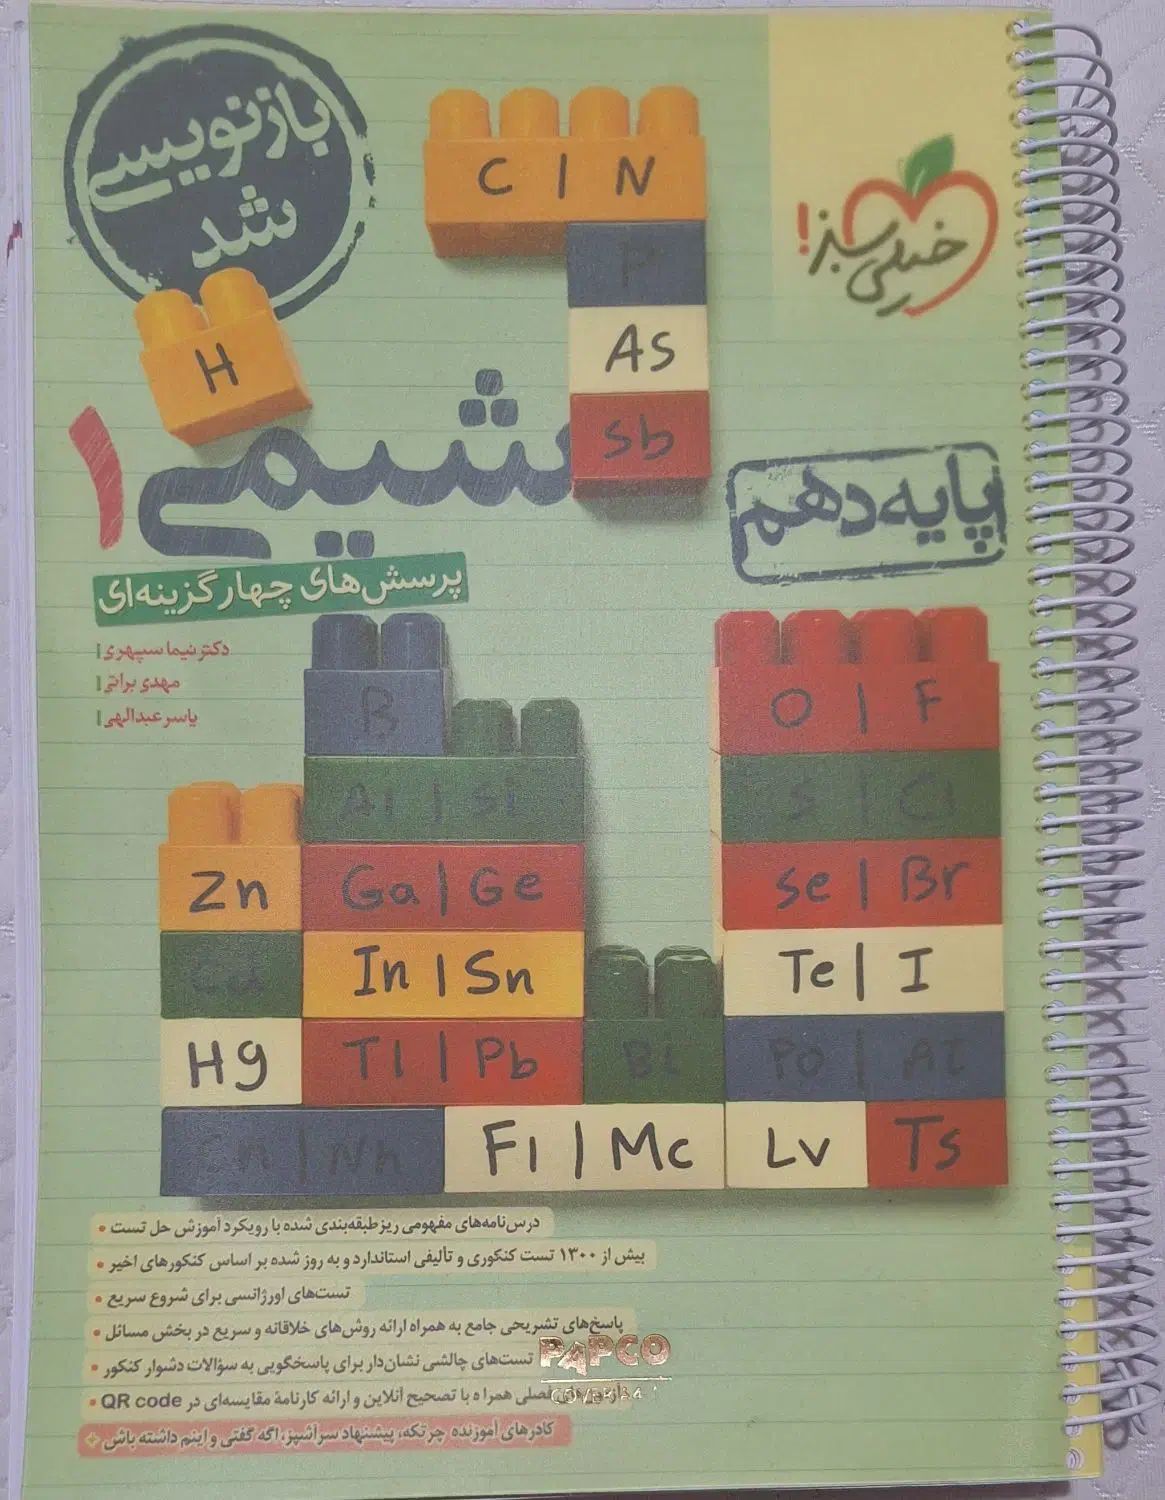 بازنویسی
شد
خیلی سبز!
C | N
P
As
Sb
H
شیمی ۱
پایه دهم
پرسش‌های چهارگزینه‌ای
دکتر نیما سپهری
مهدی براتی
یاسر عبدالهی
B
Al | Si
Zn
Ga | Ge
Cd
In | Sn
Hg
Tl | Pb
Bi
O | F
S | Cl
Se | Br
Te | I
Po | At
Cn | Nh
Fl | Mc
Lv
Ts
درس‌نامه‌های مفهومی ریزطبقه‌بندی شده با رویکرد آموزش حل تست
بیش از ۱۳۰۰ تست کنکوری و تألیفی استاندارد و به روز شده بر اساس کنکورهای اخیر
تست‌های اورژانسی برای شروع سریع
پاسخ‌های تشریحی جامع به همراه ارائه روش‌های خلاقانه و سریع در بخش مسائل
تست‌های چالشی نشان‌دار برای پاسخگویی به سؤالات دشوار کنکور
فصلی همراه با تصحیح آنلاین و ارائه کارنامهٔ مقایسه‌ای در QR code
کادرهای آموزنده چرتکه، پیشنهاد سرآشپز، اگه گفتی و اینم داشته باش
PAPCO